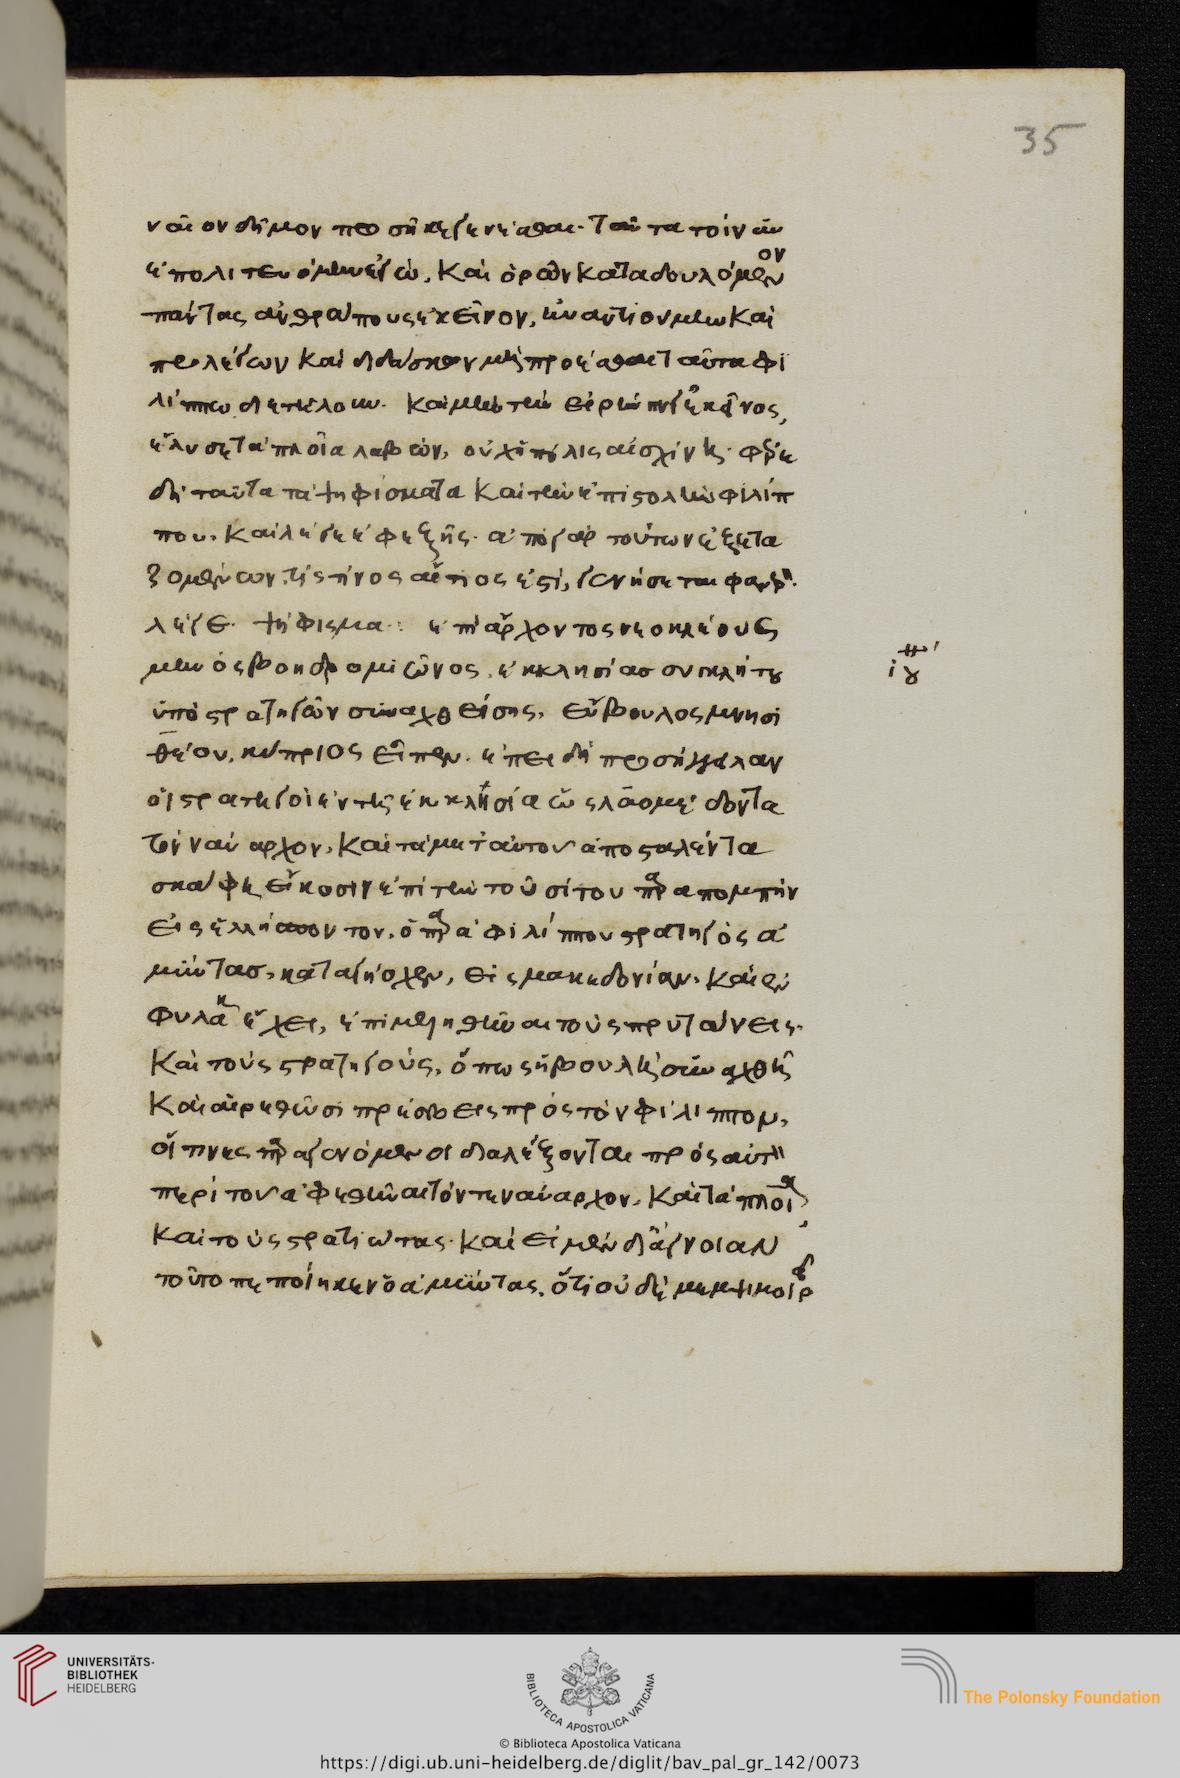 35
ναιον δῆμον προσῆκε γενέσθαι. ταῦτα τοίνυν
ἐπολιτευόμην ἐγώ, καὶ ὁρῶν καταδουλούμενον
πάντας ἀνθρώπους ἐκεῖνον, ἠναντιούμην καὶ
προλέγων καὶ διδάσκων μὴ προέσθαι ταῦτα φι
λίππῳ διετέλουν. καὶ μὴν τὴν εἰρήνην γ' ἐκεῖνος,
ἔλυσε τὰ πλοῖα λαβών, οὐχ ἡ πόλις αἰσχίνη. φέρε
δὴ ταῦτα τὰ ψηφίσματα καὶ τὴν ἐπιστολὴν φιλίπ
που. καὶ λέγε ἐφεξῆς. ἀπὸ γὰρ τούτων ἐξετα
ζομένων, τίς τίνος αἴτιός ἐστι, γενήσεται φανερόν.
λέγε. ψήφισμα: ἐπὶ ἄρχοντος νεοκλέους
μηνὸς βοηδρομιῶνος, ἐκκλησίας συγκλήτου
ὑπὸ στρατηγῶν συναχθείσης, εὔβουλος μνησι
θέου, κύπριος εἶπεν. ἐπειδὴ προσήγγειλαν
οἱ στρατηγοὶ ἐν τῇ ἐκκλησίᾳ ὡς λαομέδοντα
τὸν ναύαρχον, καὶ τὰ μετ' αὐτοῦ ἀποσταλέντα
σκάφη εἴκοσιν ἐπὶ τὴν τοῦ σίτου παραπομπὴν
εἰς ἑλλήσποντον, ὁ παρὰ φιλίππου στρατηγὸς ἀ
μύντας, καταγήοχεν, εἰς μακεδονίαν, καὶ ἐν
φυλακῇ ἔχει, ἐπιμεληθῆναι τοὺς πρυτάνεις.
καὶ τοὺς στρατηγούς, ὅπως ἡ βουλὴ συναχθῇ
καὶ αἱρεθῶσι πρέσβεις πρὸς τὸν φίλιππον,
οἵτινες παραγενόμενοι διαλέξονται πρὸς αὐτὸν
περὶ τοῦ ἀφεθῆναι τόν τε ναύαρχον, καὶ τὰ πλοῖα
καὶ τοὺς στρατιώτας. καὶ εἰ μὲν δι' ἄγνοιαν
τοῦτο πεποίηκεν ὁ ἀμύντας, ὅτι οὐδὲ μεμψιμοιρεῖ
ιγ
UNIVERSITÄTS-
BIBLIOTHEK
HEIDELBERG
BIBLIOTECA APOSTOLICA VATICANA
The Polonsky Foundation
© Biblioteca Apostolica Vaticana
https://digi.ub.uni-heidelberg.de/diglit/bav_pal_gr_142/0073